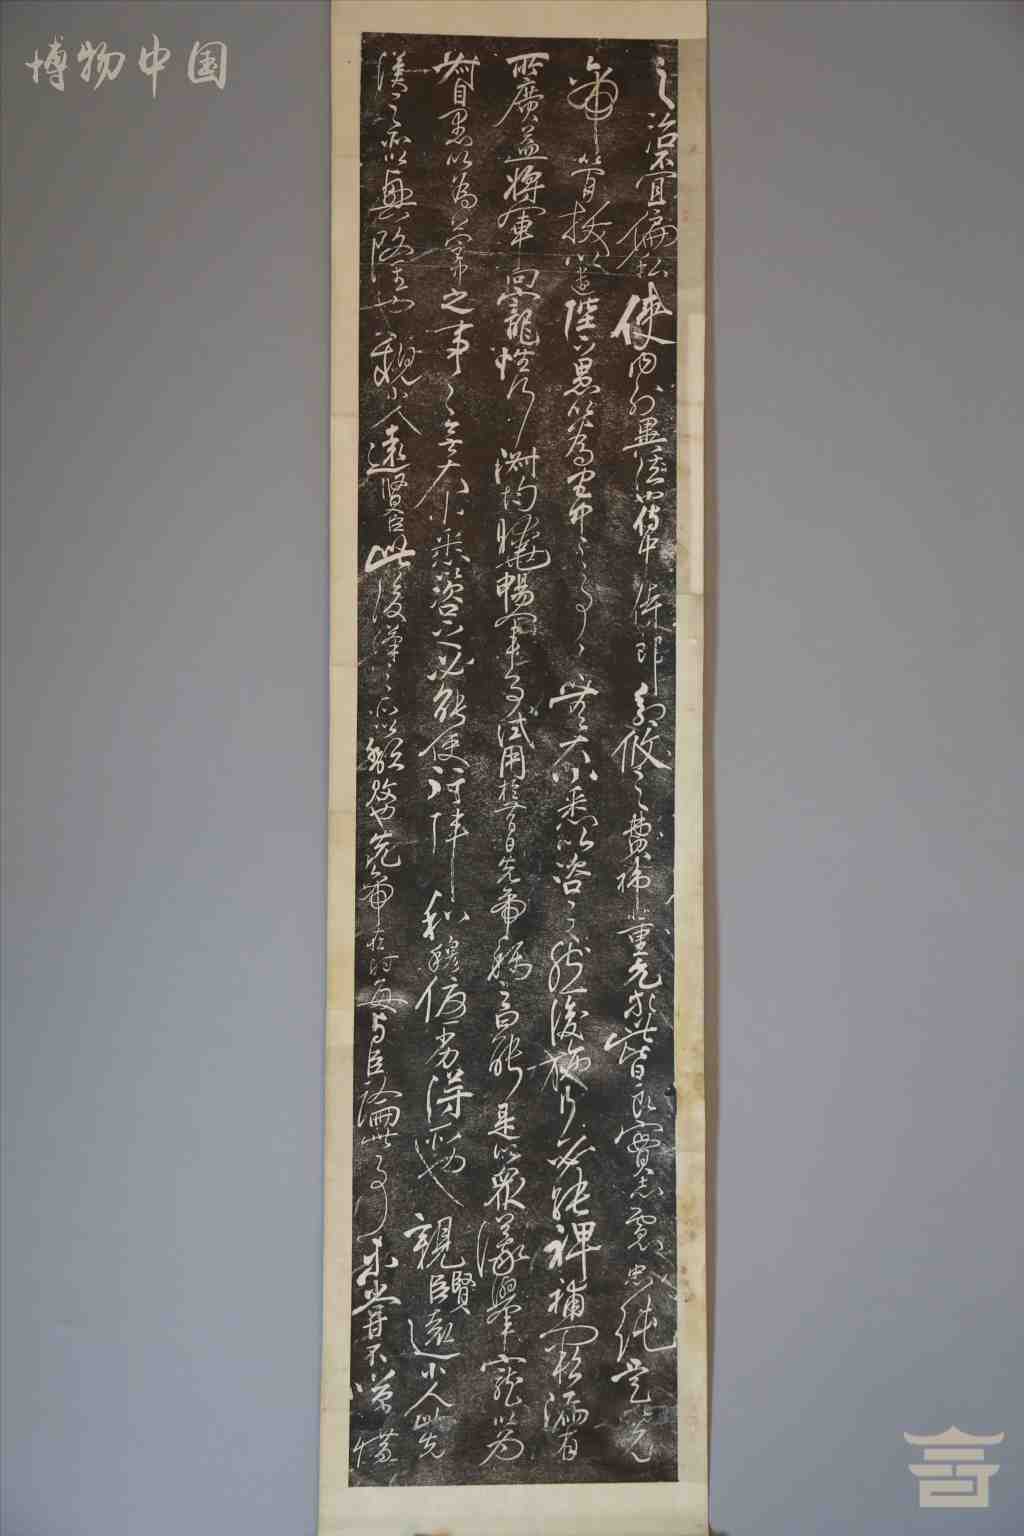 博物中国
之治不宜偏私使内外異法也侍中侍郎郭攸之費禕董允等此皆良實志慮忠純是以先
帝簡拔以遺陛下愚以為宮中之事事無大小悉以咨之然後施行必能裨補闕漏有
所廣益將軍向寵性行淑均曉暢軍事試用於昔日先帝稱之曰能是以衆議舉寵以為
督愚以為營中之事事無大小悉以咨之必能使行陣和穆優劣得所也親賢臣遠小人此先
漢之所以興隆也親小人遠賢臣此後漢之所以傾頹也先帝在時每與臣論此事未嘗不嘆惜